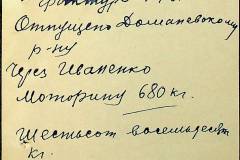 Отпущено Доманевскому
р-ну
Через Иваненко
Моторину 680 кг.
Шестьсот восемьдесят
кг.